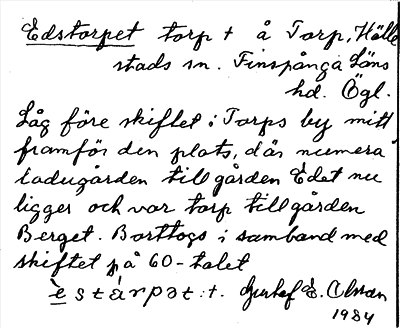 Edstorpet torp + å Torp, Hälle
stads sn. Finspånga Läns
hd. Ögl.
Låg före skiftet i Torps by mitt
framför den plats, där numera
ladugården till gården Edet nu
ligger och var torp till gården
Berget. Borttogs i samband med
skiftet på 60-talet
è s t á r p ə t :t. Gustaf E. Olsson
1984